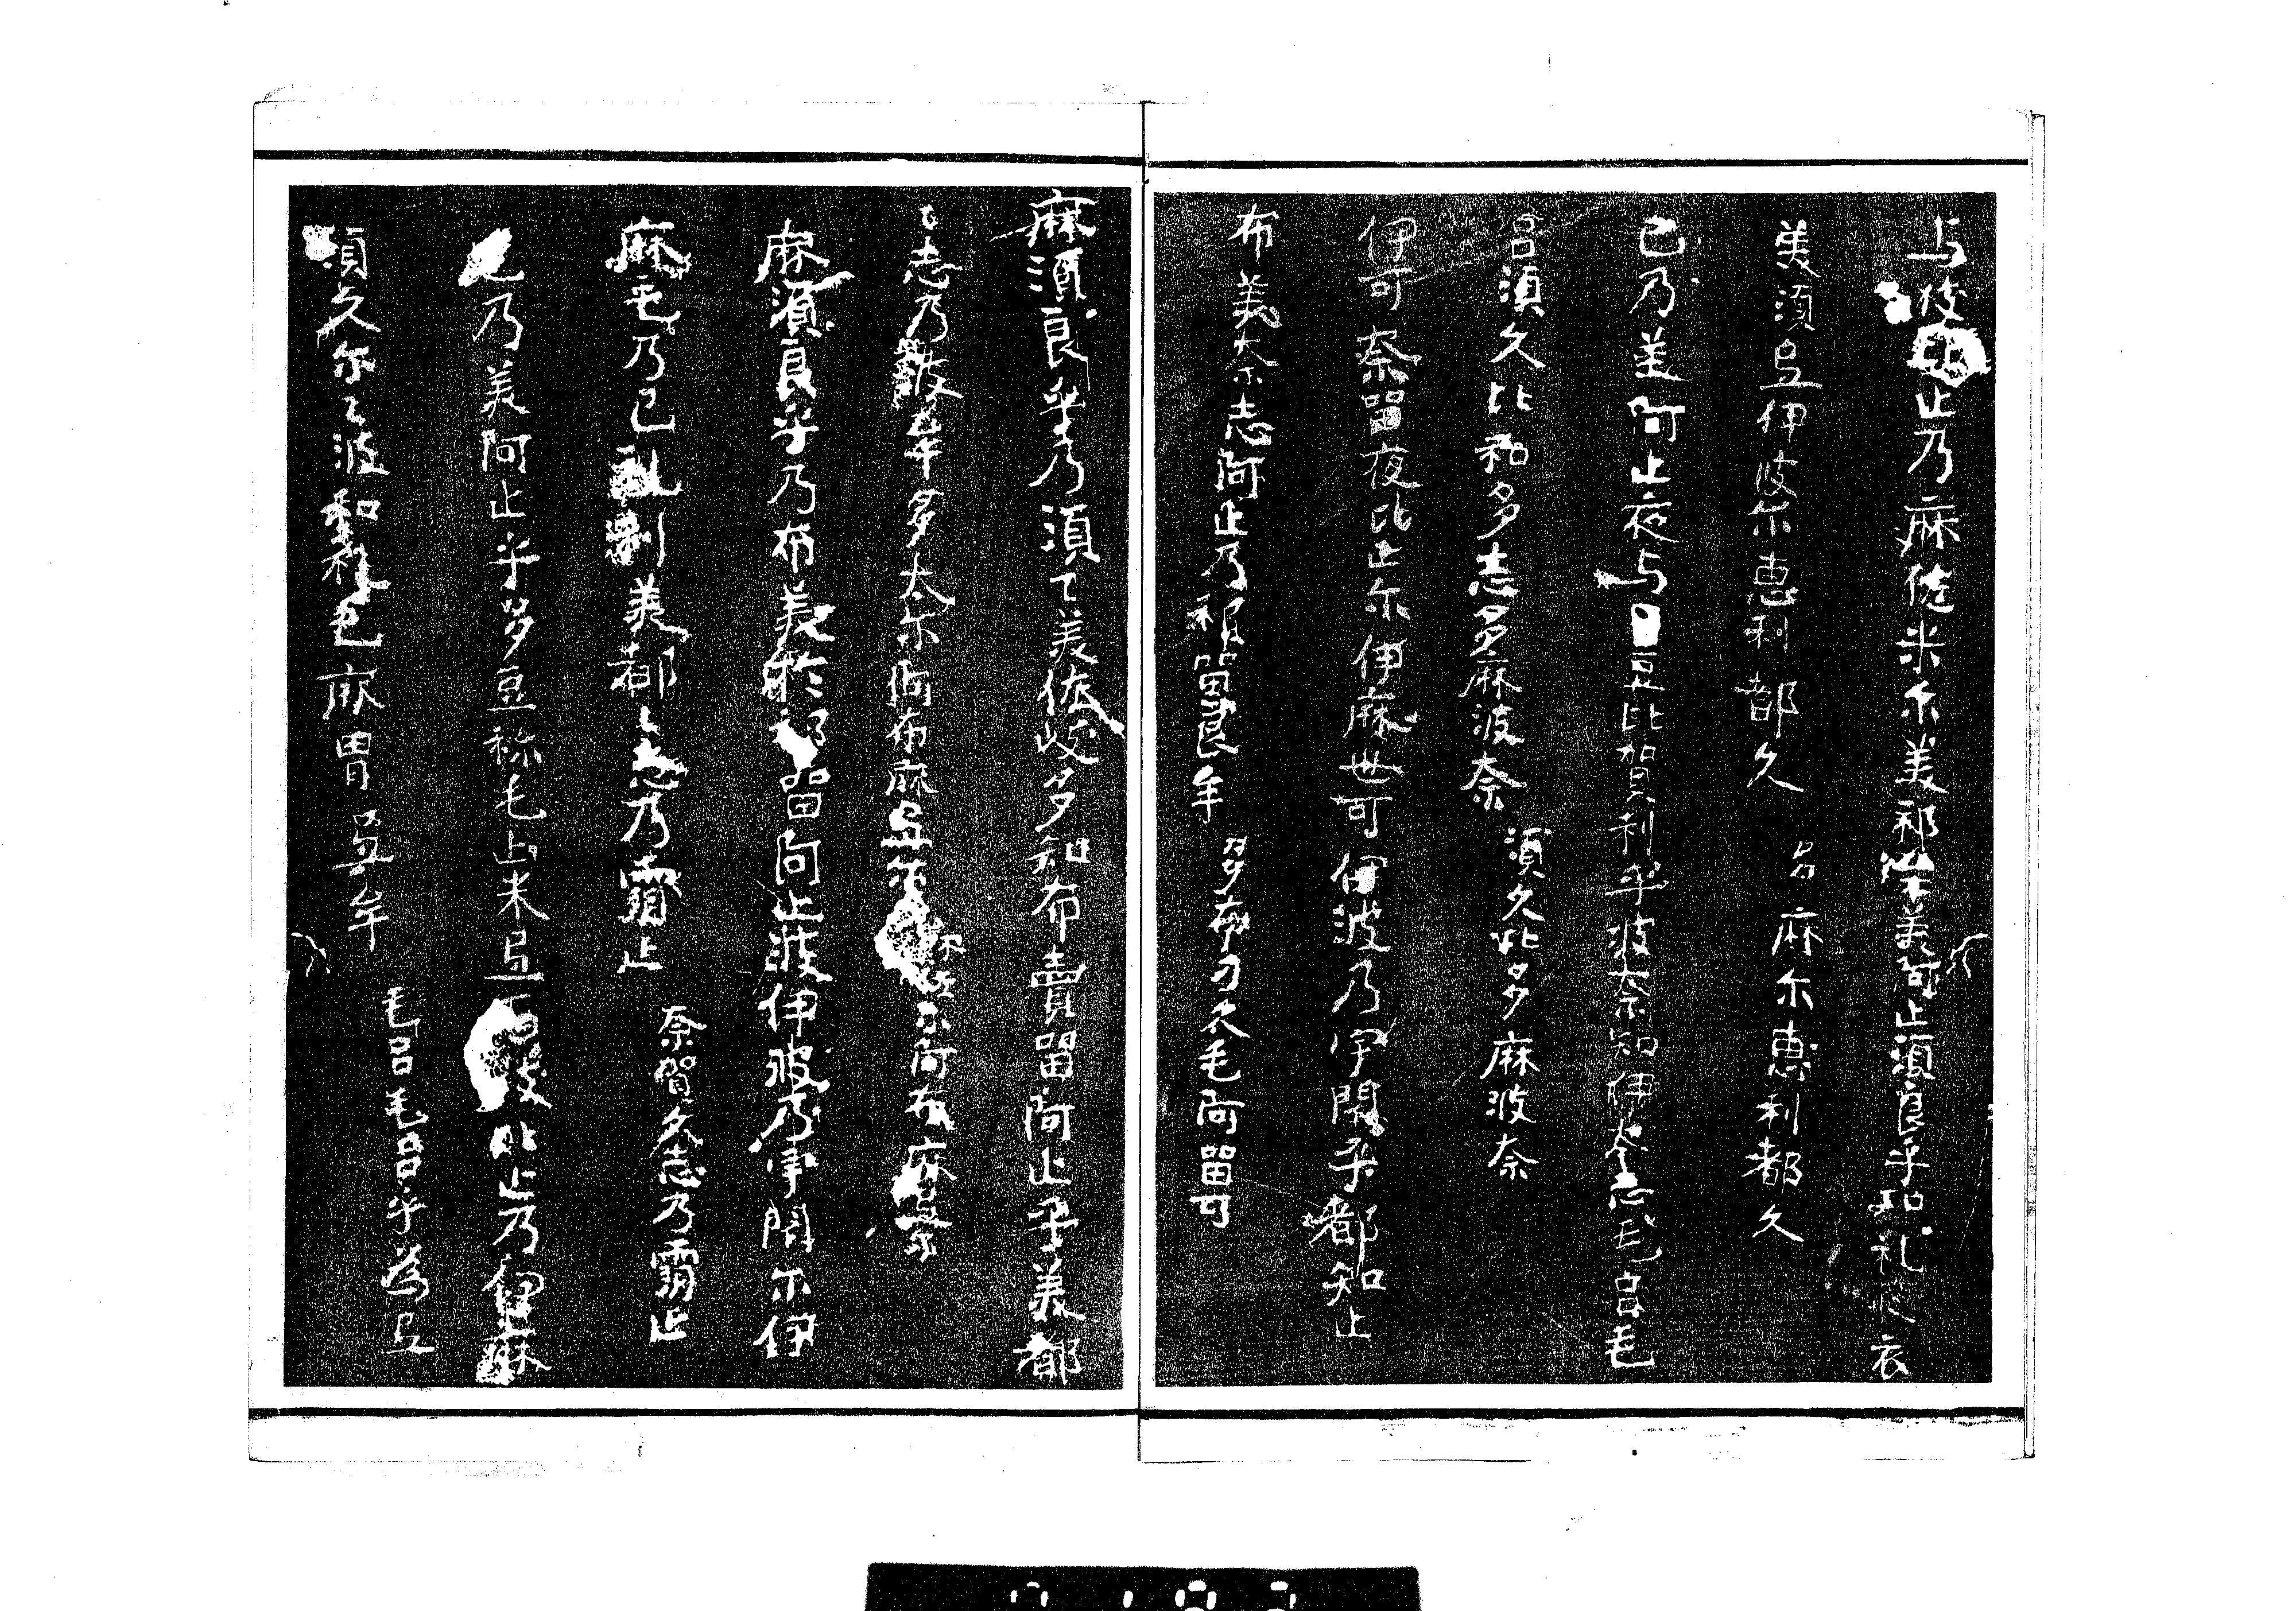 与伎比止乃麻佐米尓美祁牟美阿止須良乎和礼波衣
美須弖伊波尓恵利都久　多麻尓恵利都久
己乃美阿止夜与呂豆比賀利乎波奈知伊太志毛呂毛
呂須久比和多志多麻波奈　須久比多麻波奈
伊可奈留夜比止尓伊麻世可伊波乃宇閇乎都知止
布美奈志阿止乃祁留良牟　多布刀久毛阿留可
麻須良乎乃須々美佐岐多知布賣留阿止乎美都
々志乃波牟多太尓阿布麻弖尓　佐尓阿布麻弖尓
麻須良乎乃布美於祁留阿止波伊波乃宇閇尓伊
麻毛乃己礼利美都々志乃覇止　奈賀久志乃覇止
己乃美阿止乎多豆祢毛止米弖与伎比止乃伊麻
須久尓々波和礼毛麻胃弖牟　毛呂毛呂乎為弖